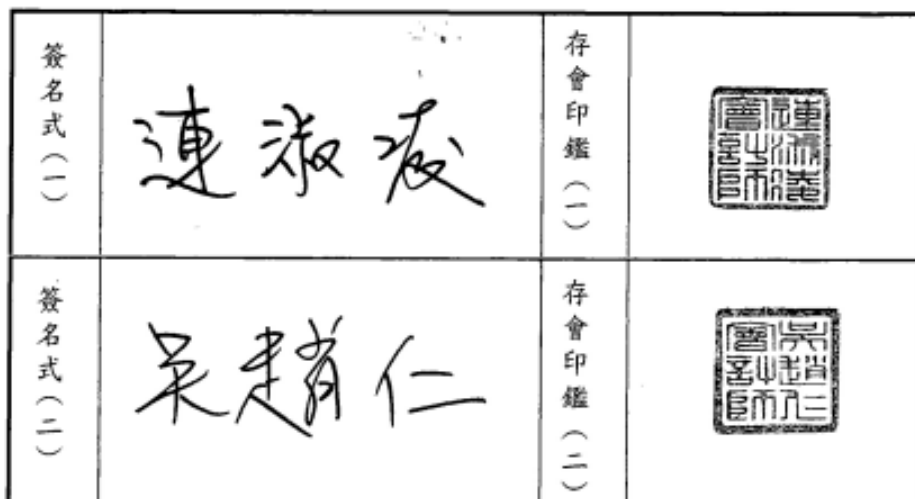 簽名式(一)
連淑凌
存會印鑑(一)
連淑凌會計師
簽名式(二)
吳趙仁
存會印鑑(二)
吳趙仁會計師